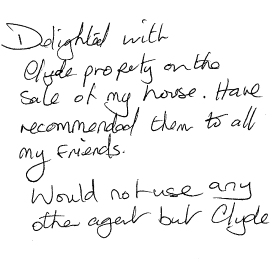 Delighted with
Clyde property on the
sale of my house. Have
recommended them to all
my friends.
Would not use any
other agent but Clyde